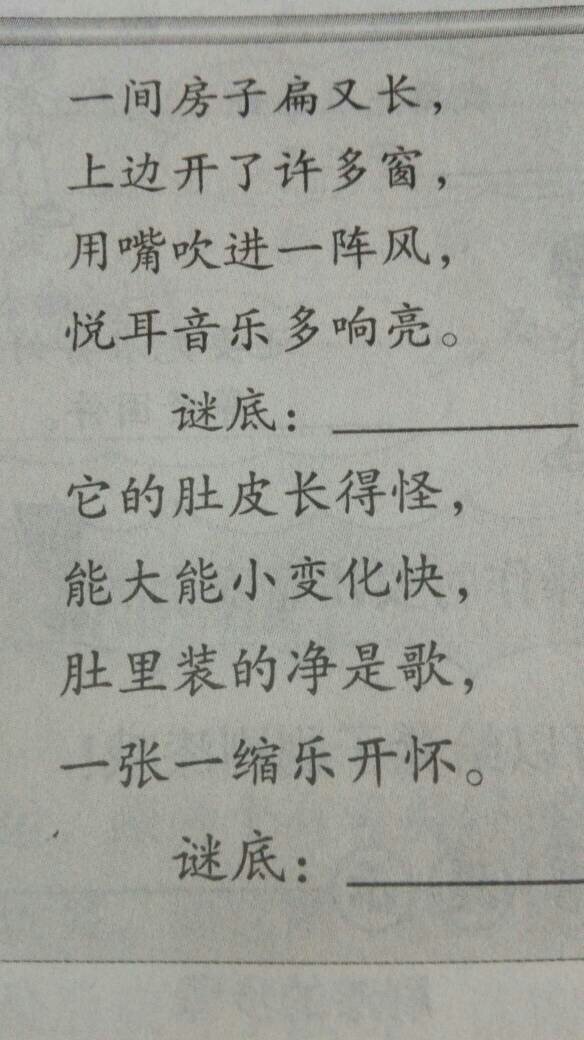 一间房子扁又长，
上边开了许多窗，
用嘴吹进一阵风，
悦耳音乐多响亮。
谜底：
它的肚皮长得怪，
能大能小变化快，
肚里装的净是歌，
一张一缩乐开怀。
谜底：